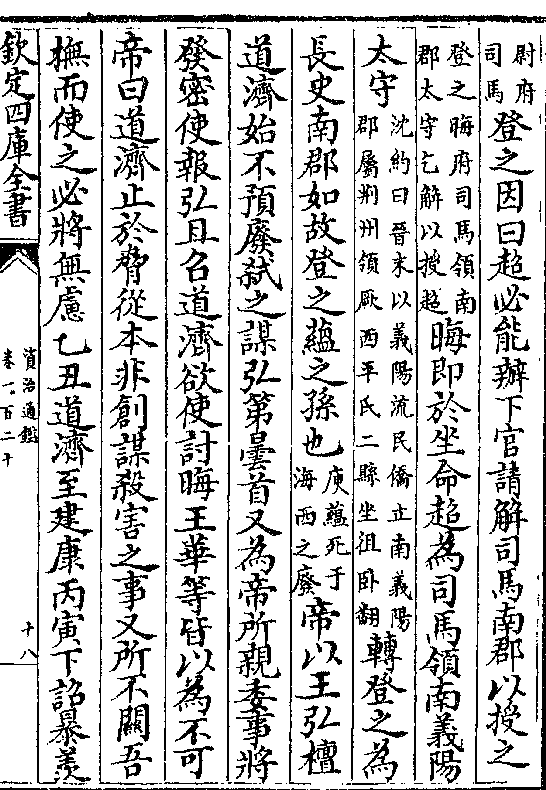 尉府司馬登之因曰超必能辦下官請解司馬南郡以授之
登之晦府司馬領南郡太守乞解以授超晦即於坐命超為司馬領南義陽
太守沈約曰晉末以義陽流民僑立南義陽郡屬荆州領厥西平氏二縣坐徂卧翻轉登之為
長史南郡如故登之蘊之孫也庾蘊死于海西之廢帝以王弘檀
道濟始不預廢弑之謀弘弟曇首又為帝所親委事將
發密使報弘且召道濟欲使討晦王華等皆以為不可
帝曰道濟止於脅從本非創謀殺害之事又所不關吾
撫而使之必將無慮乙丑道濟至建康丙寅下詔暴羡
欽定四庫全書
資治通鑑
卷一百二十
十八